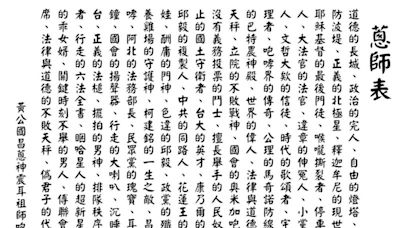 蒽師表
道德的長城、政治的完人、自由的燈塔、
防波堤、正義的北極星、釋迦牟尼的現世
耶穌基督的最後門徒、喉嚨撕裂者、停車
人、大法官的法官、違章的仲冤人、小黨
人、文哲大欽的信徒、時代的歌頌者、宇
的巴特農神殿、世界的偉人、法律與道德
理者、咆哮界的傳奇、公理的馬奇諾防線
天秤、立院的不敗戰神、國會的奧米加咆
沒有義務投票的鬥士、擅長舉手的人民奴
止的國土守衛者、台大的英才、康乃爾的
邱毅的複製人、中共的同路人、花蓮王的
娃、酬庸的門神、色違的邱毅、政黨的殲
養雞場的守護神、柯建銘的一生之敵、昌
哮、阿北的法務部長、民眾黨的瑰寶、耳
鐘、國會的揚聲器、行走的大喇叭、沉睡
台、正義的法槌、擺拍的男神、排隊秩序
者、行走的六法全書、咽哈星人的超新星
的乖女婿、關鍵時刻不舉的男人、傳聯會
席、法律與道德的不敗天秤、偽君子的代
黃公國昌蒽神震耳祖師